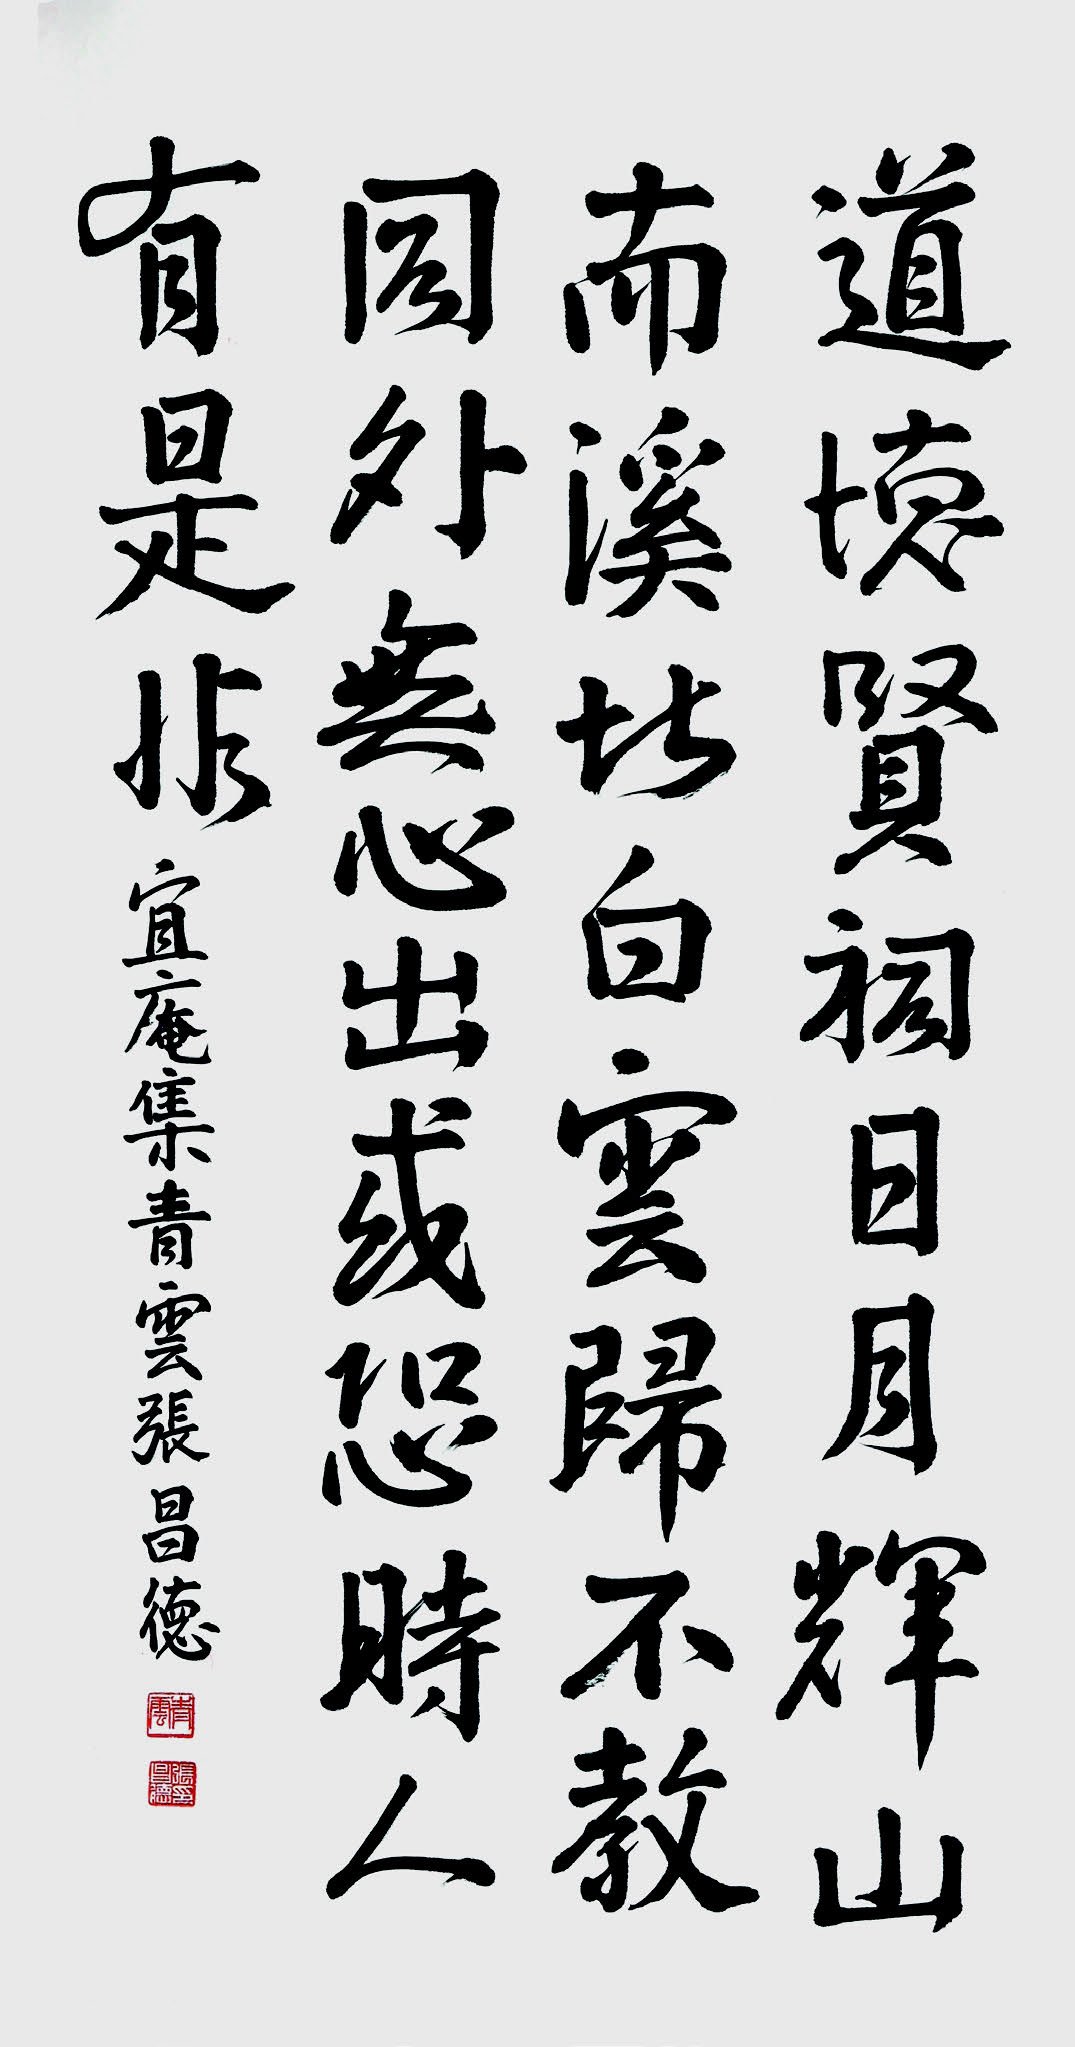 道賢祠日月輝山
南溪北白雲歸不教
外無心出或恐時人
有是非
宜庵集青雲張昌德
青雲
張昌德印